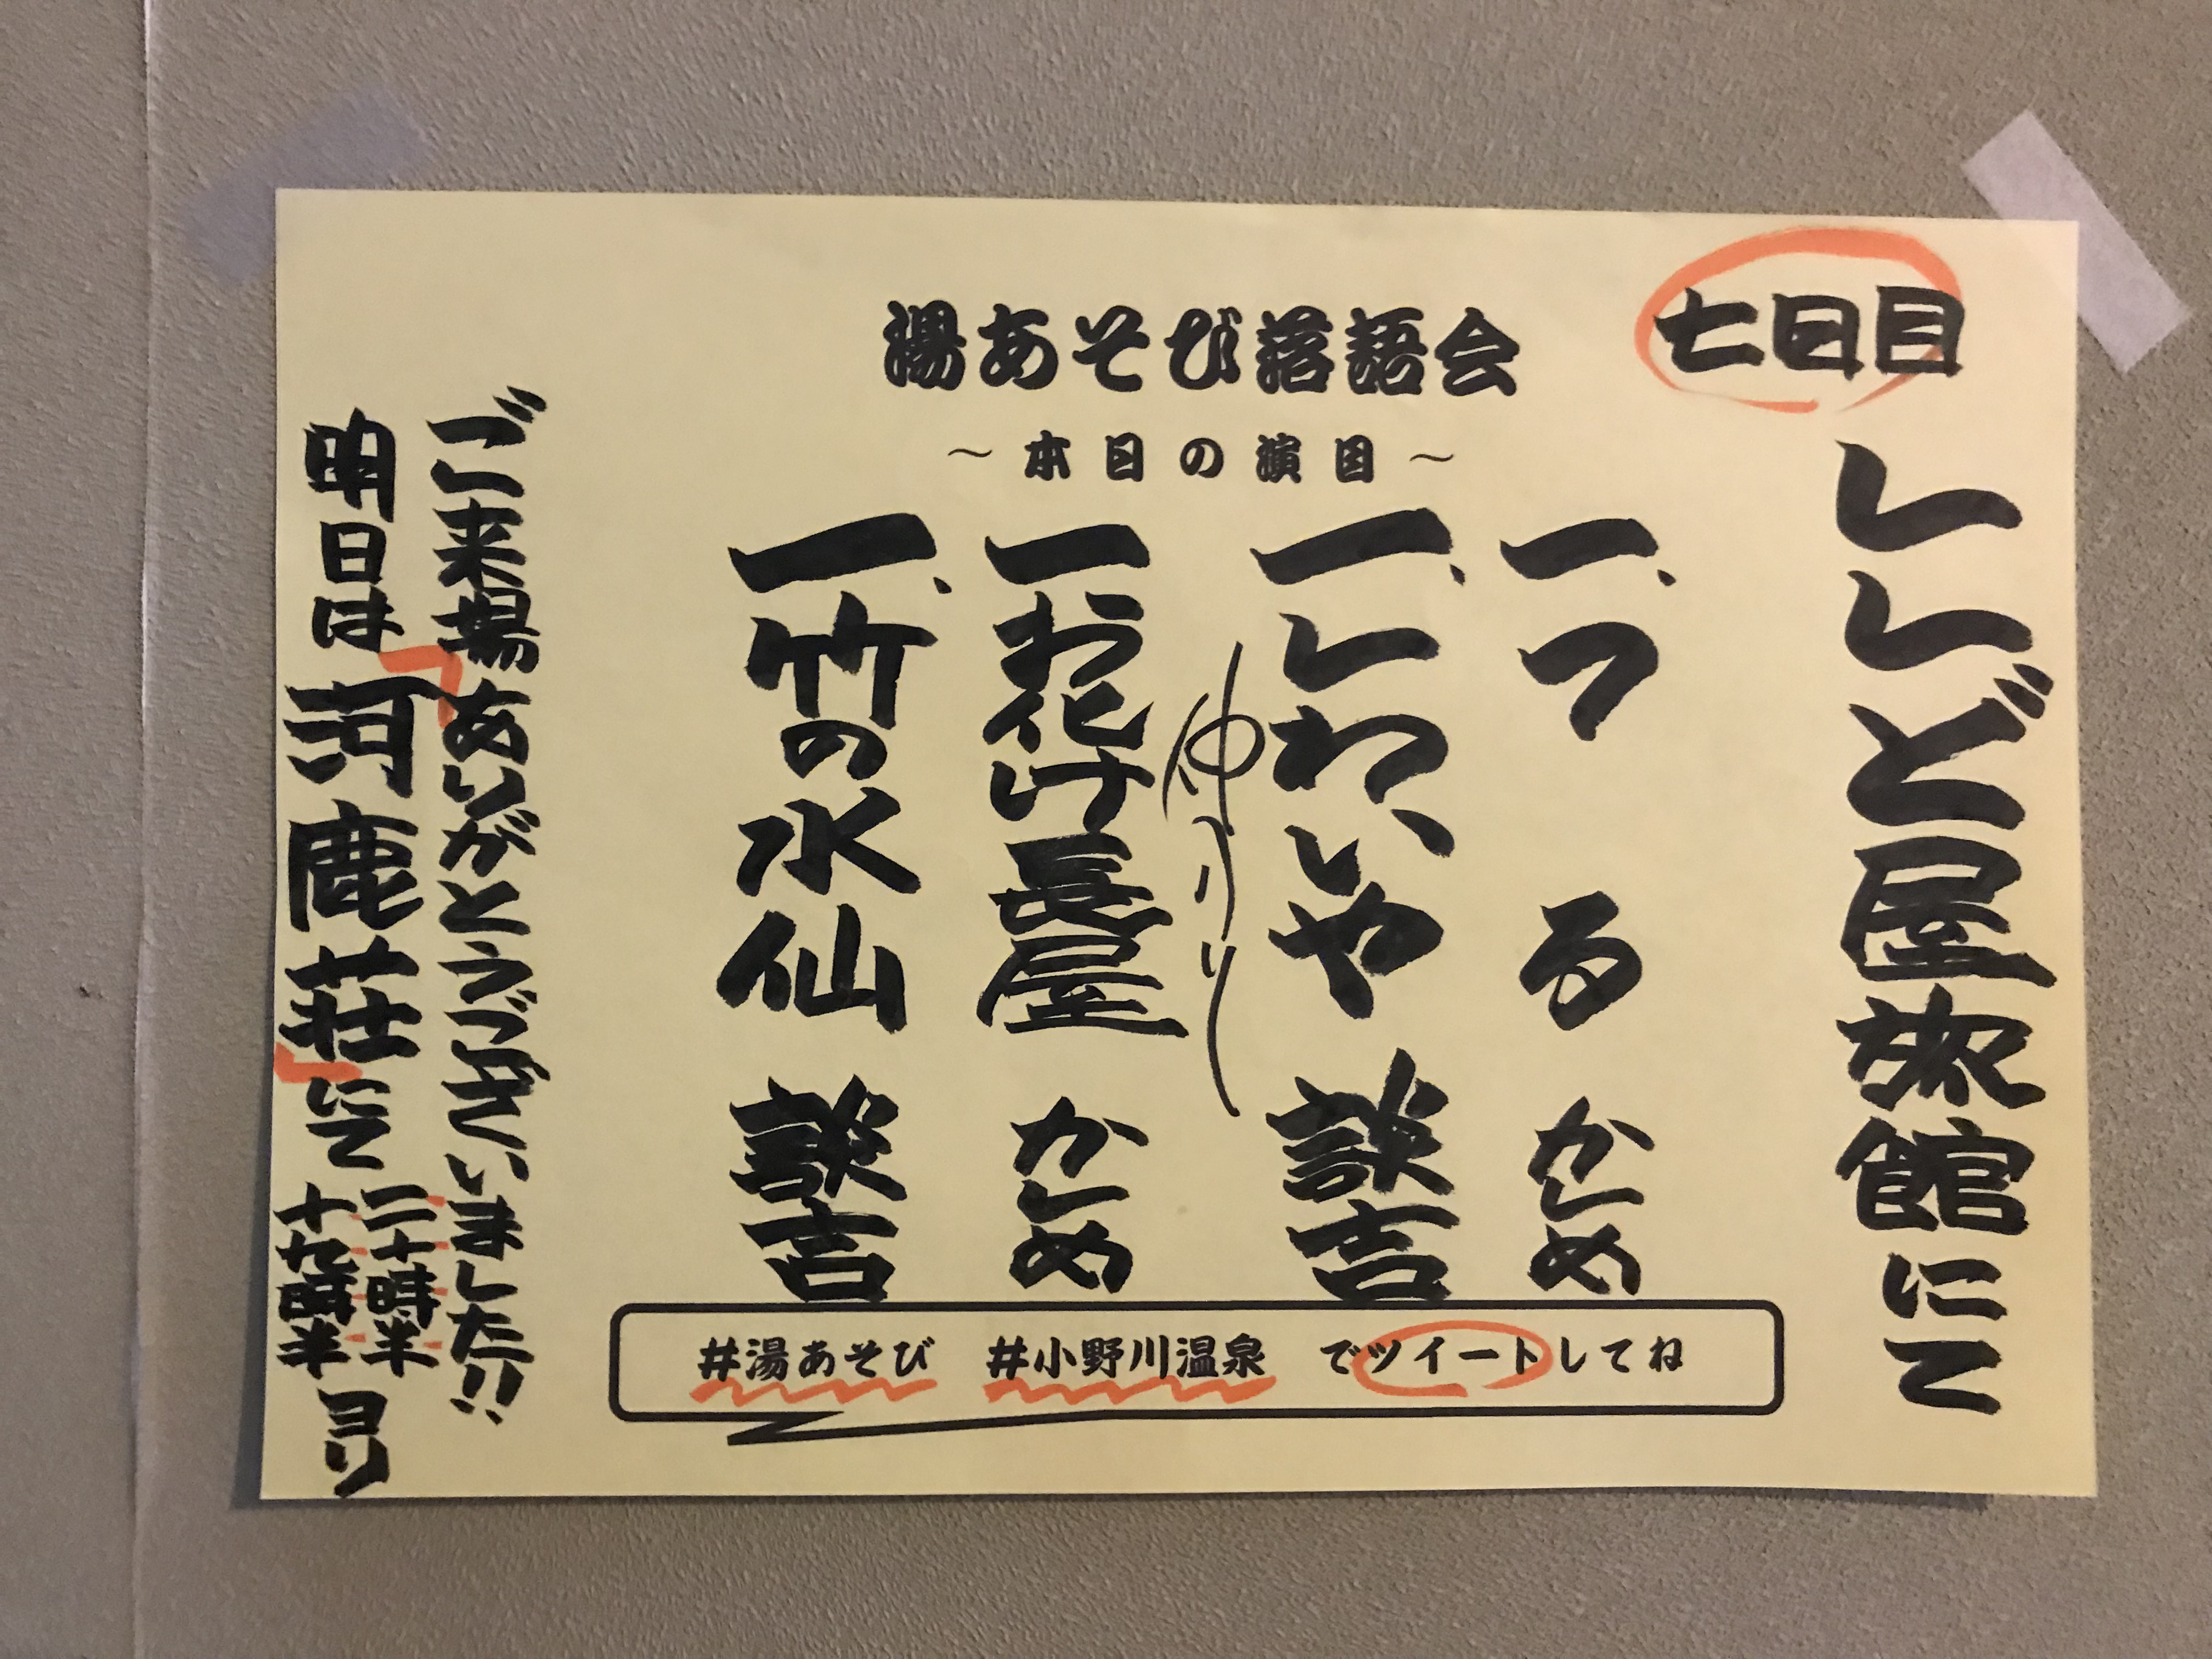 七日目
湯あそび落語会
～本日の演目～
ししど屋旅館にて
一、つる かしめ
一、しわいや 談吉
仲入り
一、お化け長屋 かしめ
一、竹の水仙 談吉
ご来場ありがとうございました!!
明日は「河鹿荘」にて 二十時半 十九時半 ヨリ
#湯あそび #小野川温泉 でツイートしてね